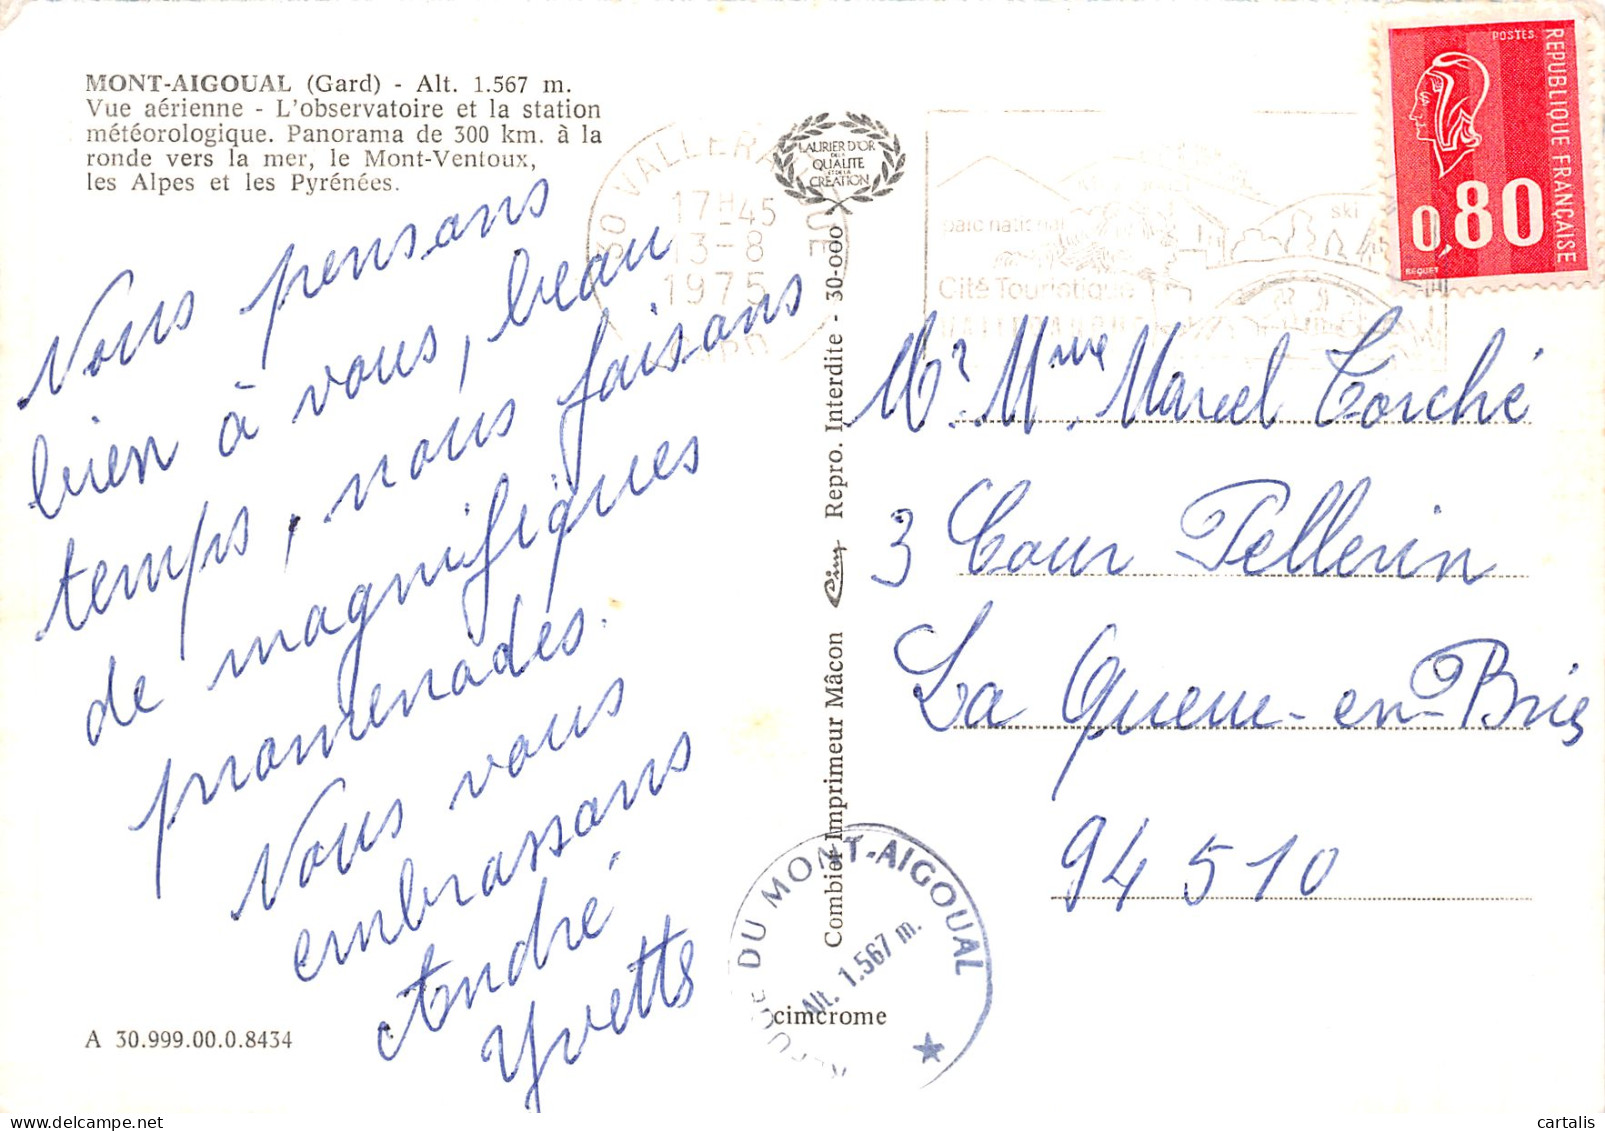 MONT-AIGOUAL (Gard) - Alt. 1.567 m.
Vue aérienne - L'observatoire et la station
météorologique. Panorama de 300 km. à la
ronde vers la mer, le Mont-Ventoux,
les Alpes et les Pyrénées.
Nous pensons
bien à vous, beau
temps, nous faisons
de magnifiques
promenades.
Nous vous
embrassons
André
Yvette
A 30.999.00.0.8434
30 VALLERAUGUE
17H45
13-8
1975
GARD
LAURIER D'OR
DE LA
QUALITE
ET DE LA
CRÉATION
Combier Imprimeur Mâcon Cim Repro. Interdite - 30-000
parc national
ski
Cité Touristique
VALLERAUGUE
POSTES
REPUBLIQUE FRANÇAISE
0,80
BEQUET
Mr. Mme. Marcel Torché
3 Cour Pellerin
La Queue-en-Brie
94510
REFUGE DU MONT-AIGOUAL
Alt. 1.567 m.
cimcrome
cartalis